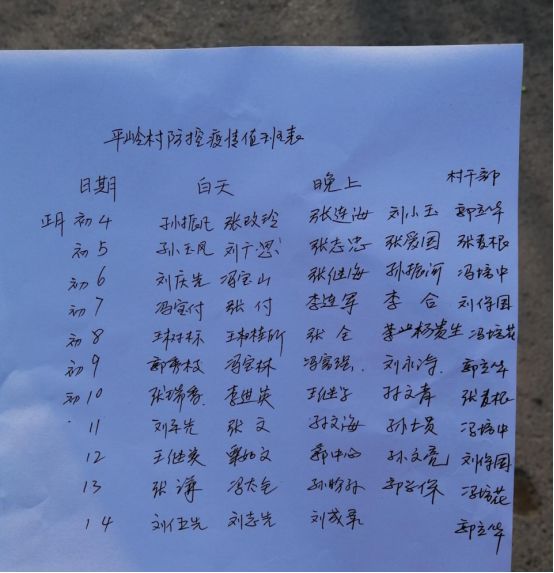 平岭村防控疫情值班表
日期 白天 晚上 村干部
正月 初4 孙振凡 张改玲 张连海 刘小玉 郭立华
初5 孙玉凤 刘广恩 张志忠 张爱国 张麦根
初6 刘庆先 冯宝山 张继海 孙振河 冯培中
初7 冯宝付 张付 李连军 李合 刘保国
初8 王树标 张全 杨贵生 冯培花
初9 郭秀枝 冯宝林 冯富强 刘永涛 郭立华
初10 张瑞香 李进英 王继子 孙文青 张麦根
11 刘军先 张文 孙文海 孙士员 冯培中
12 王继英 郭中心 孙文亮 刘保国
13 张谦 冯大仓 郭子保 冯培花
14 刘伍先 刘志先 刘成荣 郭立华